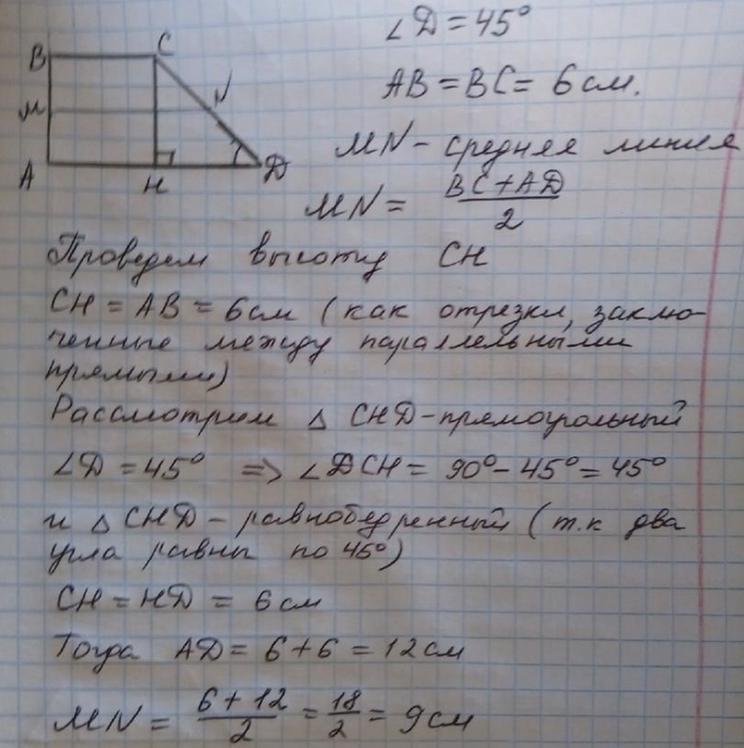 ∠D = 45°
AB = BC = 6 см.
MN - средняя линия
MN = (BC + AD)/2
B C
M N
A H D
Проведем высоту CH
CH = AB = 6 см (как отрезки, заклю-
ченные между параллельными
прямыми)
Рассмотрим △ CHD - прямоугольный
∠D = 45° => ∠DCH = 90° - 45° = 45°
и △ CHD - равнобедренный (т.к два
угла равны по 45°)
CH = HD = 6 см
Тогда AD = 6 + 6 = 12 см
MN = (6 + 12)/2 = 18/2 = 9 см